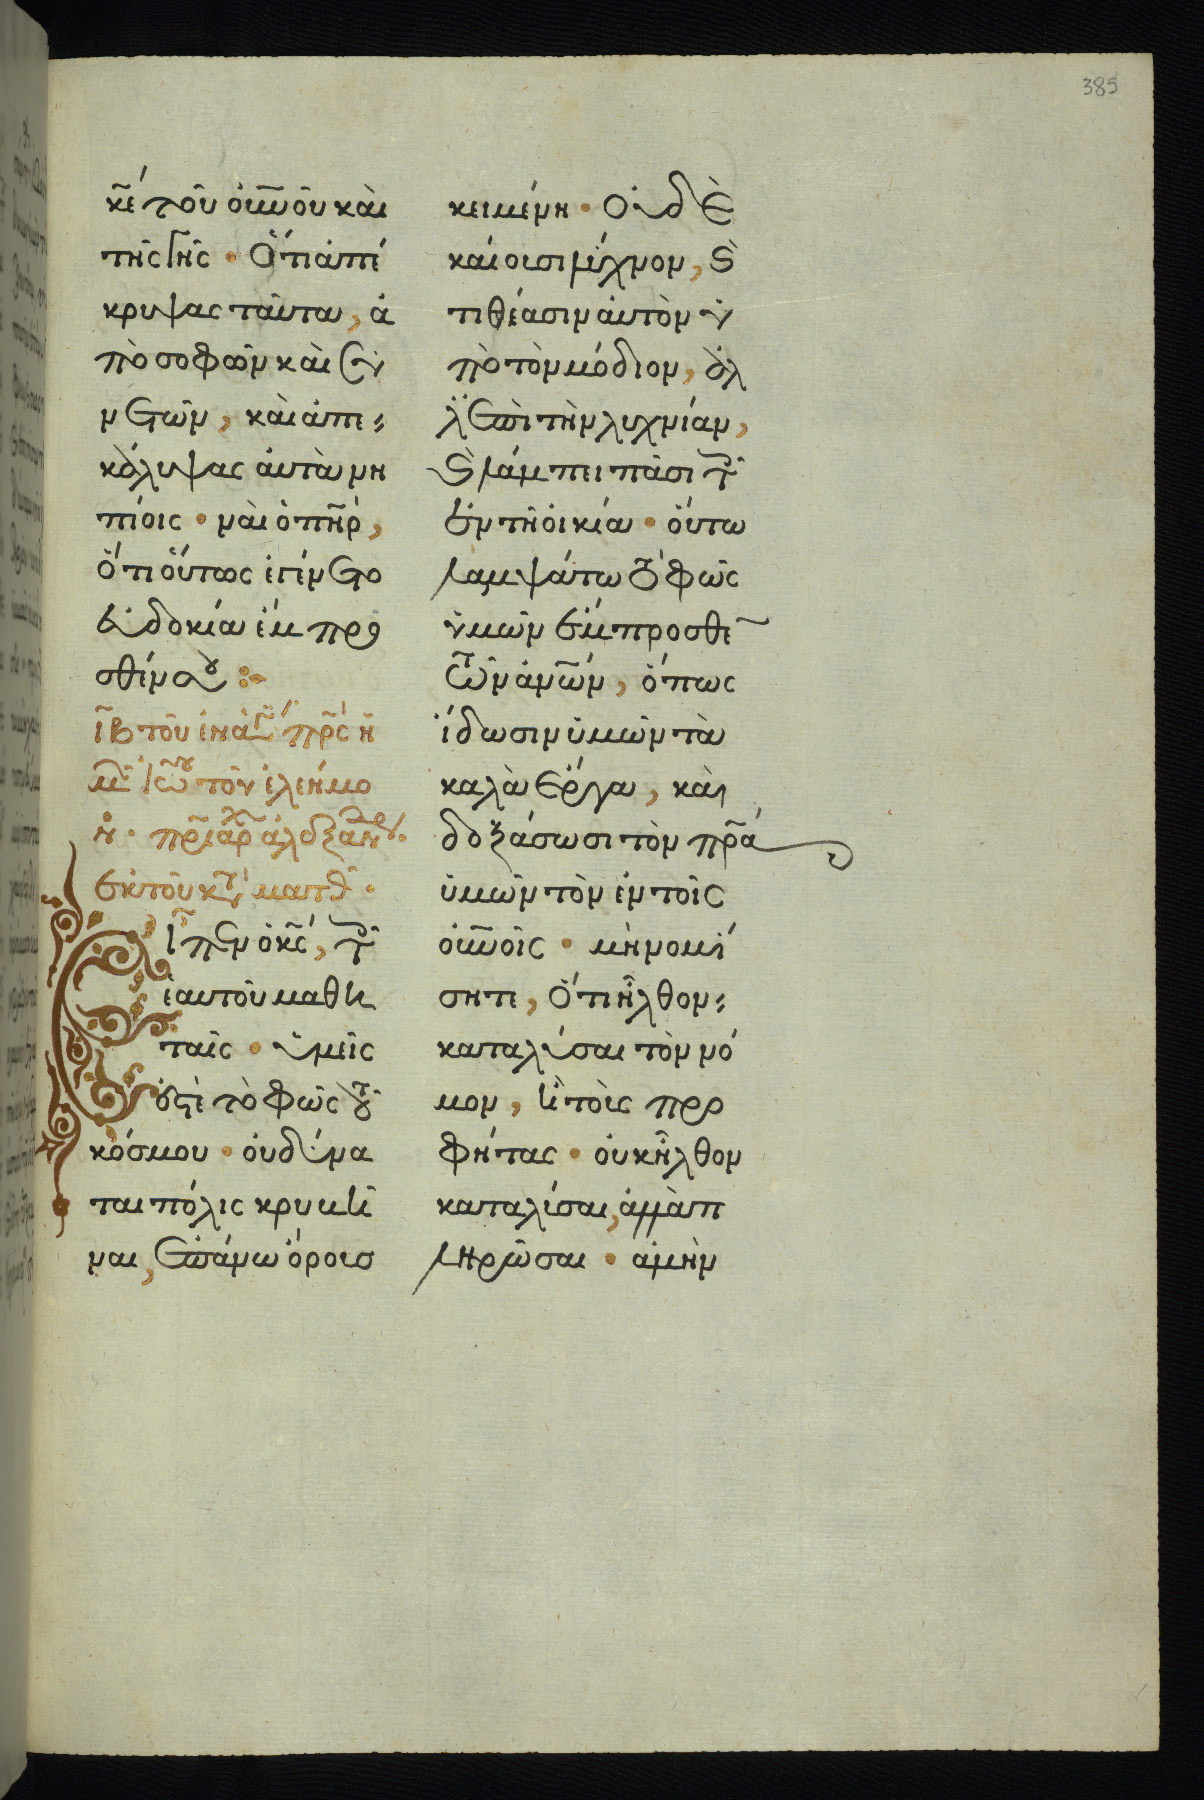 385
κε̄́ τοῦ οὐν̅οῦ καὶ
τῆς γῆς · ὅτι ἀπέ
κρυψας ταῦτα, ἀ
πὸ σοφῶν καὶ συ
νετῶν, καὶ ἀπε
κάλυψας αὐτὰ νη
πίοις · ναὶ ὁ πη̅ρ,
ὅτι οὕτως ἐγένετο
εὐδοκία ἔμπρο
σθέν σου :
ι̅β τοῦ ἐν ἁγ πρ̅ς ἡ
μ ἰω̅ τοῦ ἐλεήμο
ν · πρ̅ιάρχ ἀλεξαν
ἐκ τοῦ κτ ματθ ·
Εἶπεν ὁ κ̅ς, τοῖς
ἑαυτοῦ μαθη
ταῖς · ὑμεῖς
ἐστὲ τὸ φῶς τοῦ
κόσμου · οὐ δύνα
ται πόλις κρυβῆ
ναι, ἐπάνω ὄρους
κειμένη · οὐδὲ
καίουσι λύχνον, καὶ
τιθέασιν αὐτὸν ὑ
πὸ τὸν μόδιον, ἀλ
λ' ἐπὶ τὴν λυχνίαν,
καὶ λάμπει πᾶσι τοῖς
ἐν τῇ οἰκία · οὕτω
λαμψάτω τὸ φῶς
ὑμῶν ἔμπροσθε
τῶν ἀν̅ων, ὅπως
ἴδωσιν ὑμῶν τὰ
καλὰ ἔργα, καὶ
δοξάσωσι τὸν πρ̅α
ὑμῶν τὸν ἐν τοῖς
οὐν̅οῖς · μὴ νομί
σητε, ὅτι ἦλθον
καταλῦσαι τὸν νό
μον, ἢ τοὺς προ
φήτας · οὐκ ἦλθον
καταλῦσαι, ἀλλὰ π
ληρῶσαι · ἀμὴν